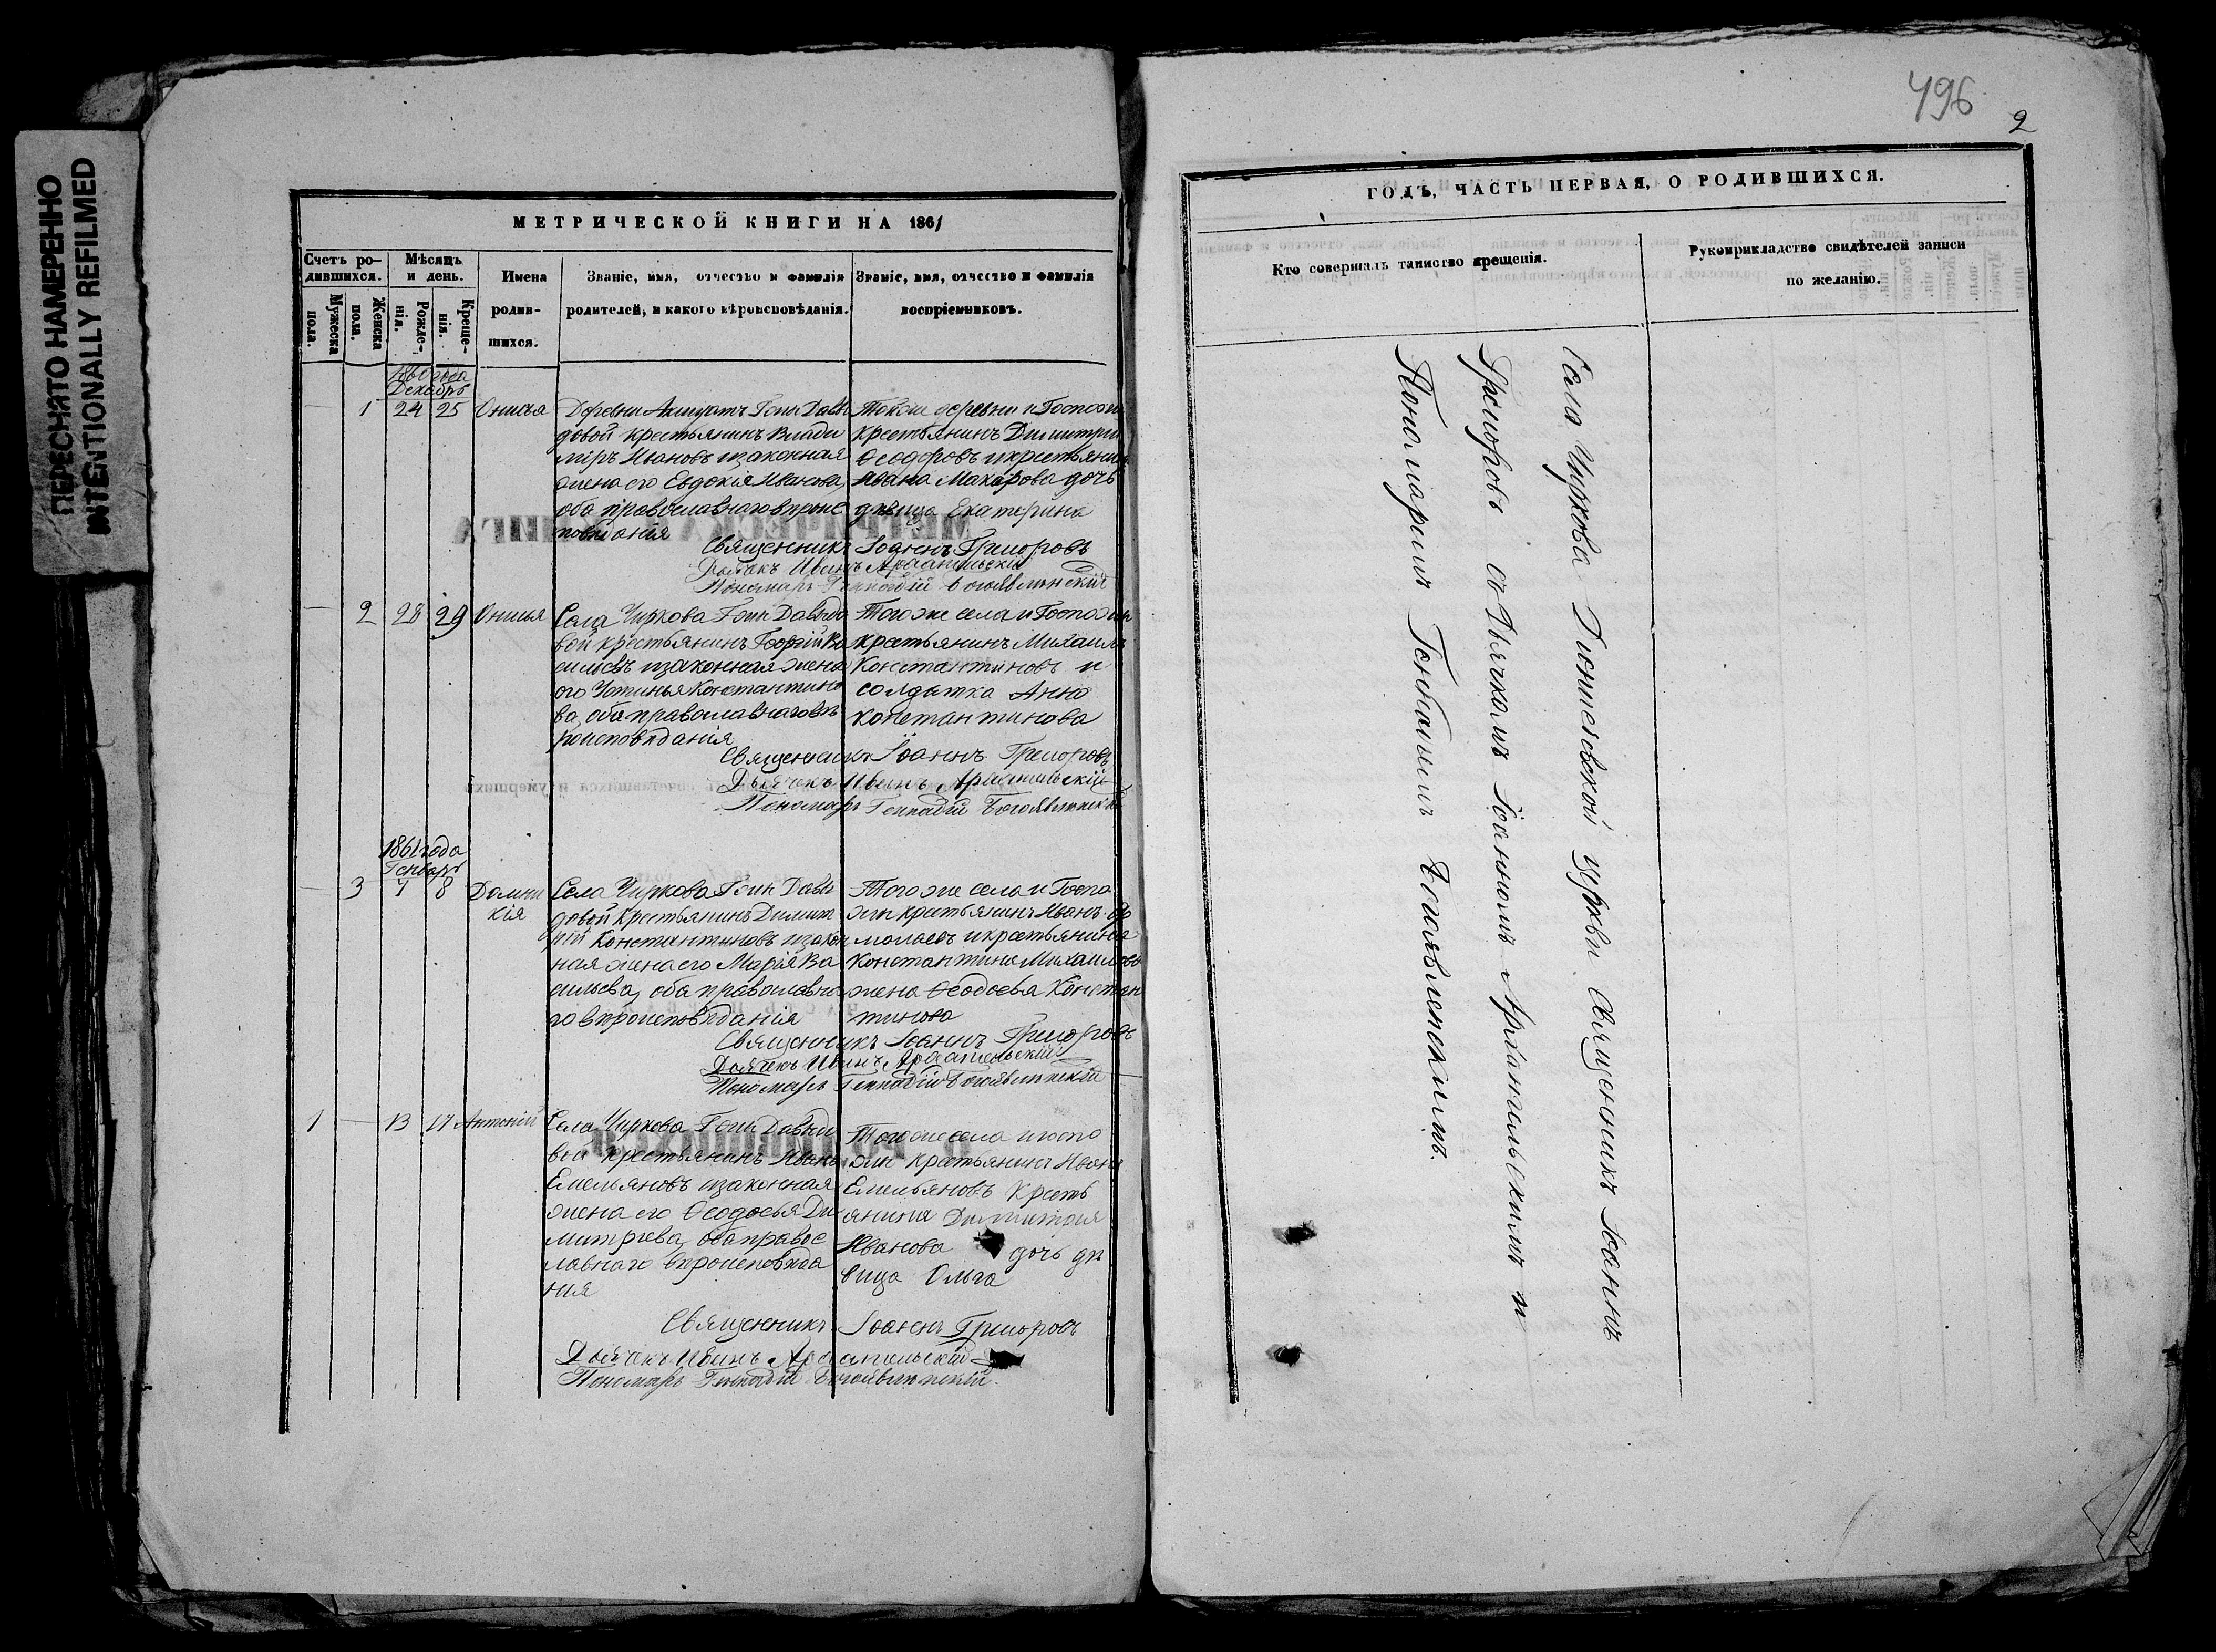 ПЕРЕСНЯТО НАМЕРЕННО
INTENTIONALLY REFILMED
МЕТРИЧЕСКОЙ КНИГИ НА 1861
Счетъ ро-
дившихся.
Мужеска
пола.
Женска
пола.
Мѣсяцъ
и день.
Рожде-
нія.
Креще-
нія.
Имена
родив-
шихся.
Званіе, имя, отчество и фамилія
родителей, и какого вѣроисповѣданія.
Званіе, имя, отчество и фамилія
воспріемниковъ.
1860 года
Декабрь
— 1 24 25
Онисья
Деревни Гжи Давы
довой крестьянинъ Влади
миръ Ивановъ изаконная
жена его Евдокія Иванова,
оба православнаго вѣроис
повѣданія
Тойже деревни и Госпожи
крестьянинъ Димитрій
Ѳеодоровъ икрестьянина
Ивана Макарова дочь
дѣвица Екатерина
Священникъ Іоаннъ Григоровъ
Дьячекъ Иванъ Архангельскій
Пономарь Геннадій Богоявленскій
— 2 28 29
Онисья
Села Чиркова Гжи Давыдо
вой крестьянинъ Георгій Ва
сильевъ изаконная жена
его Устинья Константино
ва, оба православнаго вѣ
роисповѣданія
Тогоже села и Госпожи
крестьянинъ Михаилъ
Константиновъ и
солдатка Анна
Константинова
Священникъ Іоаннъ Григоровъ
Дьячекъ Иванъ Архангельскій
Пономарь Геннадій Богоявленскій
1861 года
Генварь
— 3 7 8
Домни
кія
Села Чиркова Гжи Давы
довой Крестьянинъ Димит
рій Константиновъ изакон
ная жена его Марія Ва
сильева, оба православна
го вѣроисповѣданія
Тогоже села и Госпо
жи крестьянинъ Иванъ
икрестьянина
Константина Михаилова
жена Ѳеодосья Констан
тинова
Священникъ Іоаннъ Григоровъ
Дьячекъ Иванъ Архангельскій
Пономарь Геннадій Богоявленскій
1 — 13 17
Антоній
Села Чиркова Гжи Давыдо
вой крестьянинъ Иванъ
Емельяновъ изаконная
жена его Ѳеодосья Ди
митріева, оба правос
лавнаго вѣроисповѣда
нія
Тогоже села игоспо
жи крестьянинъ Иванъ
Емельяновъ Кресть
янина Димитрія
Иванова дочь дѣ
вица Ольга
Священникъ Іоаннъ Григоровъ
Дьячекъ Иванъ Архангельскій
Пономарь Геннадій Богоявленскій.
496
2
ГОДЪ, ЧАСТЬ ПЕРВАЯ, О РОДИВШИХСЯ.
Кто совершалъ таинство крещенія.
Рукоприкладство свидѣтелей записи
по желанію.
Села Чиркова Дионисіевской церкви Священникъ Іоаннъ
Григоровъ съ Дьячкомъ Іоанномъ Архангельскимъ и
Пономаремъ Геннадіемъ Богоявленскимъ.